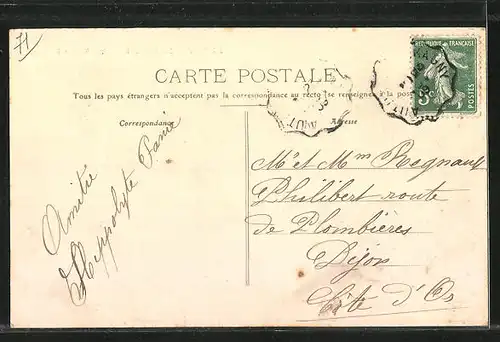 71
CARTE POSTALE
Tous les pays étrangers n'acceptent pas la correspondance au recto (se renseigner à la poste
Correspondance
Adresse
RÉPUBLIQUE FRANÇAISE
POSTES
Amitié
Hippolyte
Mr et Mm Regnault
Philibert route
de Plombières
Dijon
Côte d'Or